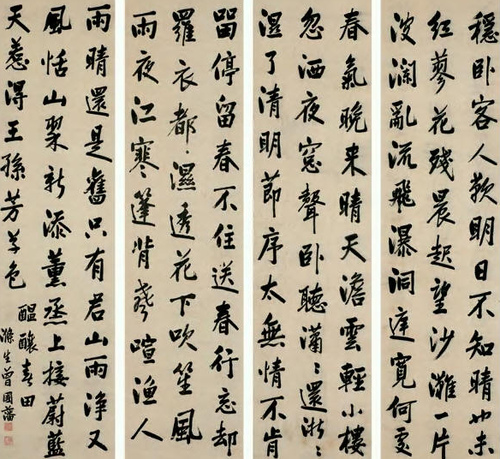 穩卧客人歎明日不知晴也未
紅蓼花殘晨起望沙灘一片
波瀾亂流飛瀑洞庭寬何處
春氣晚來晴天澹雲輕小樓
忽洒夜窓聲卧聽瀟瀟還淅淅
濕了清明節序太無情不肯
畱停留春不住送春行忘却
羅衣都濕透花下吹笙風
雨夜江寒篷背聲喧漁人
雨晴還是舊只有君山雨淨又
風恬山翠新添薰烝上接蔚藍
天惹得王孫芳草色
醞釀春田
滌生曾國藩